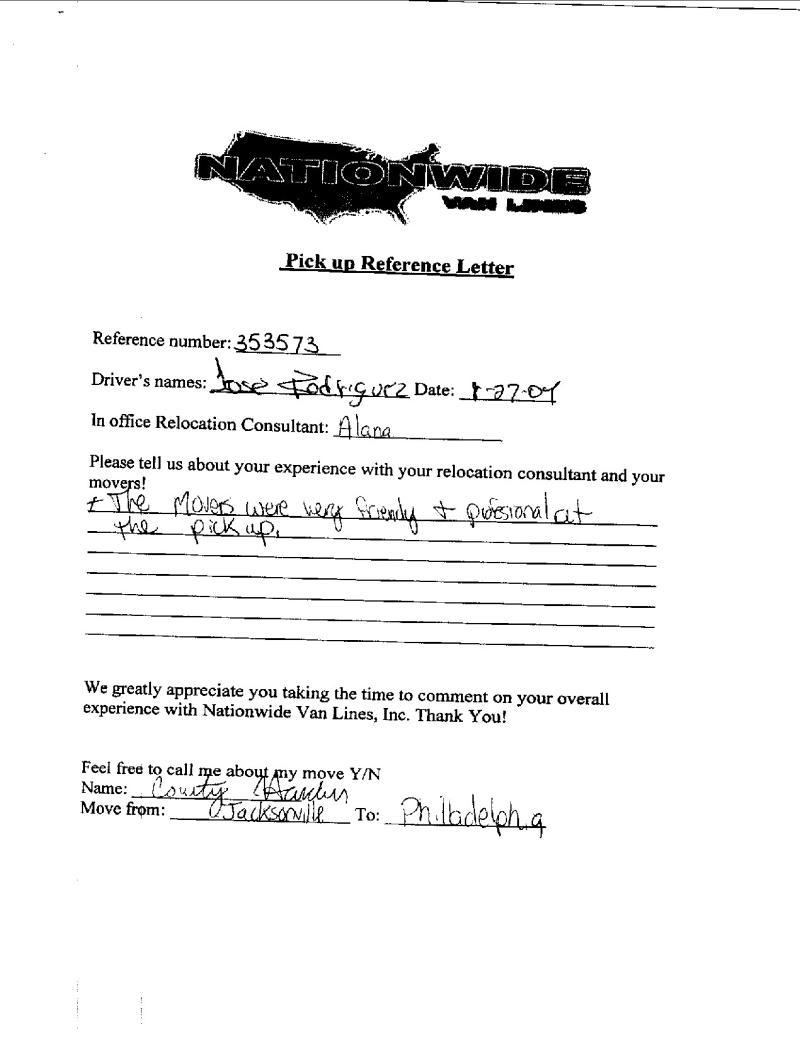 NATIONWIDE
VAN LINES
Pick up Reference Letter
Reference number: 353573
Driver's names: Jose Rodriguez Date: 8-27-07
In office Relocation Consultant: Alana
Please tell us about your experience with your relocation consultant and your
movers!
+ The Movers were very friendly + profesional at
the pick up.
We greatly appreciate you taking the time to comment on your overall
experience with Nationwide Van Lines, Inc. Thank You!
Feel free to call me about my move Y/N
Name:
Move from: Jacksonville To: Philadelphia